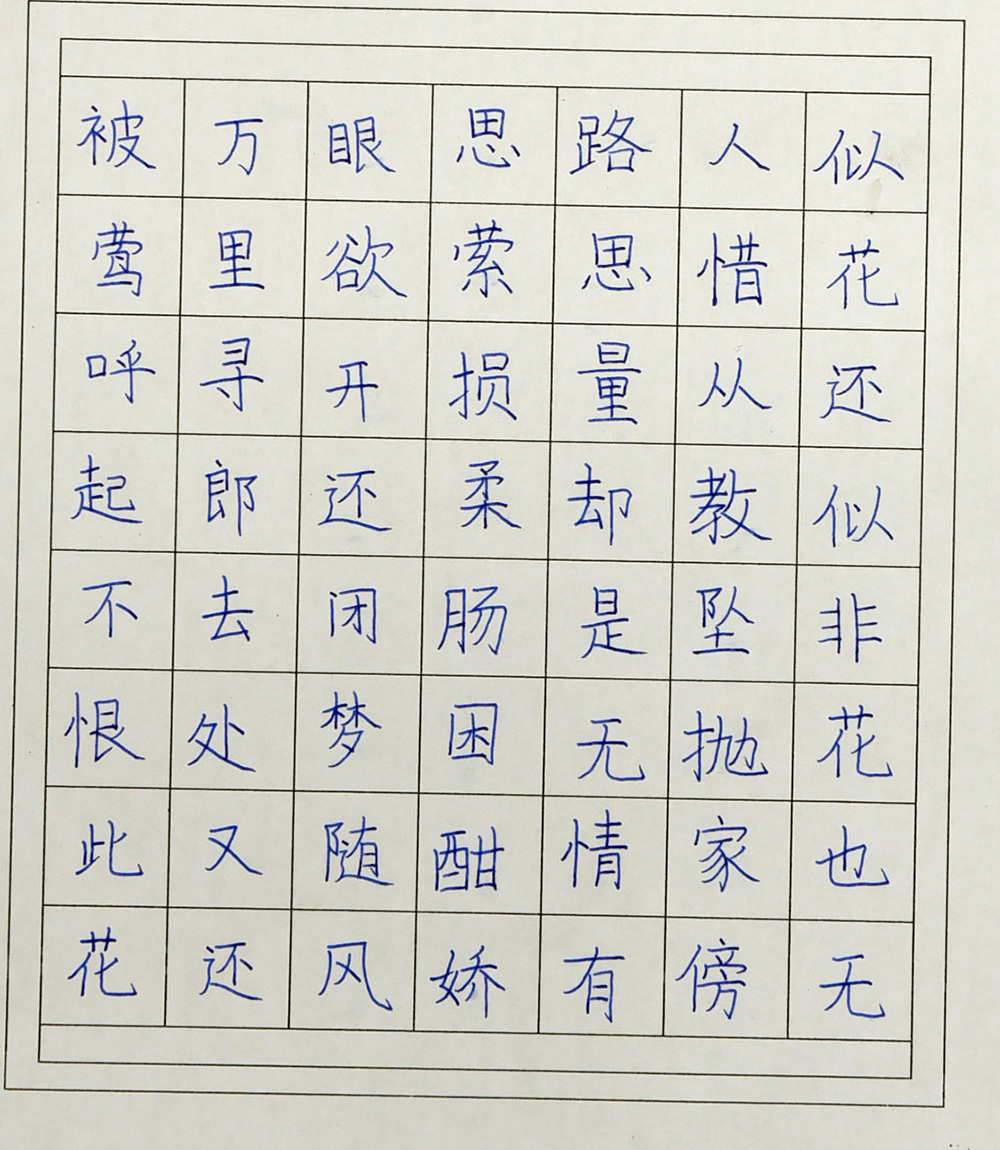 似花还似非花也无
人惜从教坠抛家傍
路思量却是无情有
思萦损柔肠困酣娇
眼欲开还闭梦随风
万里寻郎去处又还
被莺呼起不恨此花